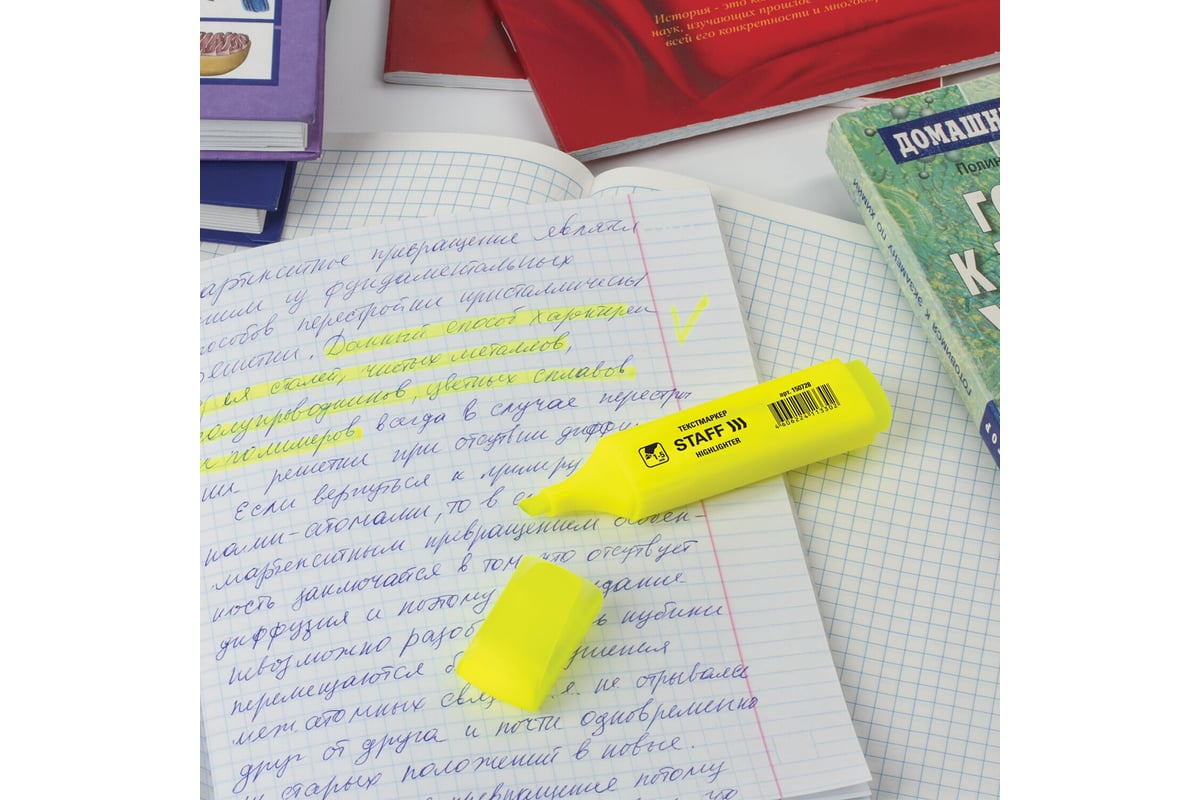 История - это ко
наук, изучающих прошлое
всей его конкретности и многообр
ДОМАШН
Полин
ГО
К
ГОТОВИМСЯ К ЭКЗАМЕНУ ПО ХИМИИ
артенситное превращение являтся
ним из фундаментальных
пособов перестройки кристаллическы
решетки. Данный способ характерен
для сталей, чистых металлов,
полупроводников, цветных сплавов
и полимеров всегда в случае перестрой
ки решетки при отсутвии диффу
Если вернуться к пример
нами-атомами, то в с
мартенситным превращением особен-
ность заключается в том, что отсутвует
диффузия и поэтому здание
невозможно разоб ь кубики
перемещаются б
межатомных связ т.е. не отрываясь
друг от друга и почти одновременно
из старых положений в новые.
превращение потому
что
ТЕКСТМАРКЕР
STAFF
HIGHLIGHTER
1-5
мм
арт. 150728
4606224113302